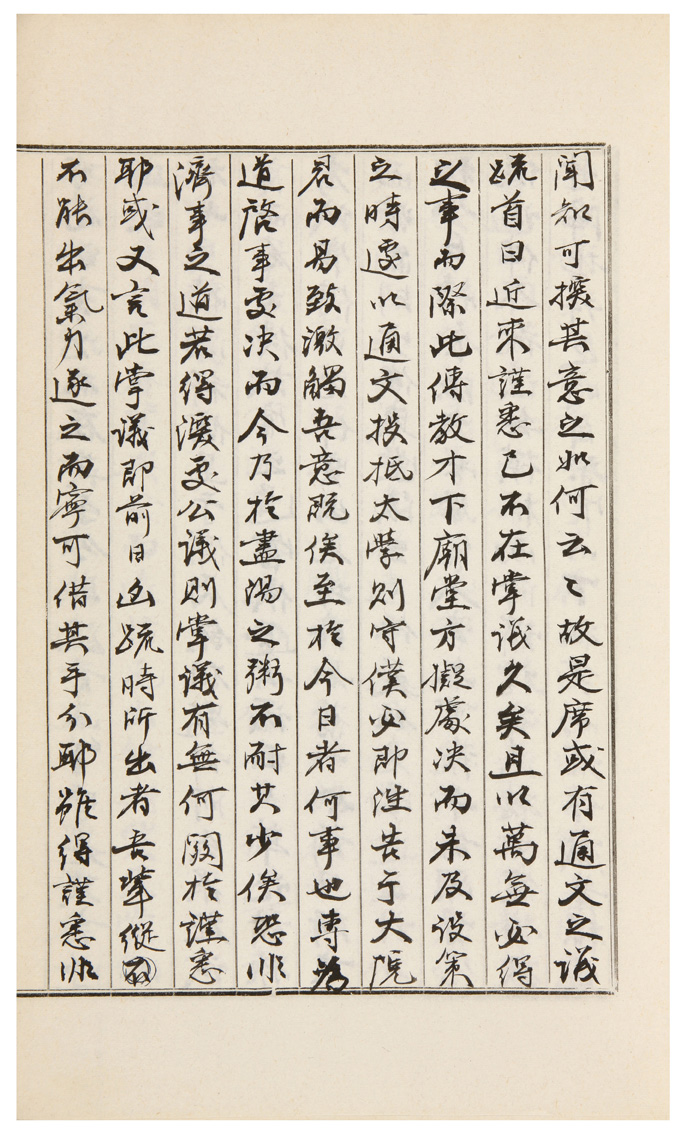 聞知可揆其意之如何云〻故是席或有通文之議
疏首曰近來謹悉已不在掌議久矣且以萬無必得
之事而際此傳教才下廟堂方擬處決而未及設策
之時遽以通文投抵太學則守僕必即泄告于大院
君而易致激觸吾意既俟至於今日者何事也專為
道啓事處決而今乃於盡湯之粥不耐其少俟恐非
濟事之道若得漢處公議則掌議有無何關於謹悉
耶或又言此掌議即前日凶疏時所出者吾輩縱
不能出氣力逐之而寧可借其手分耶雖得謹悉非